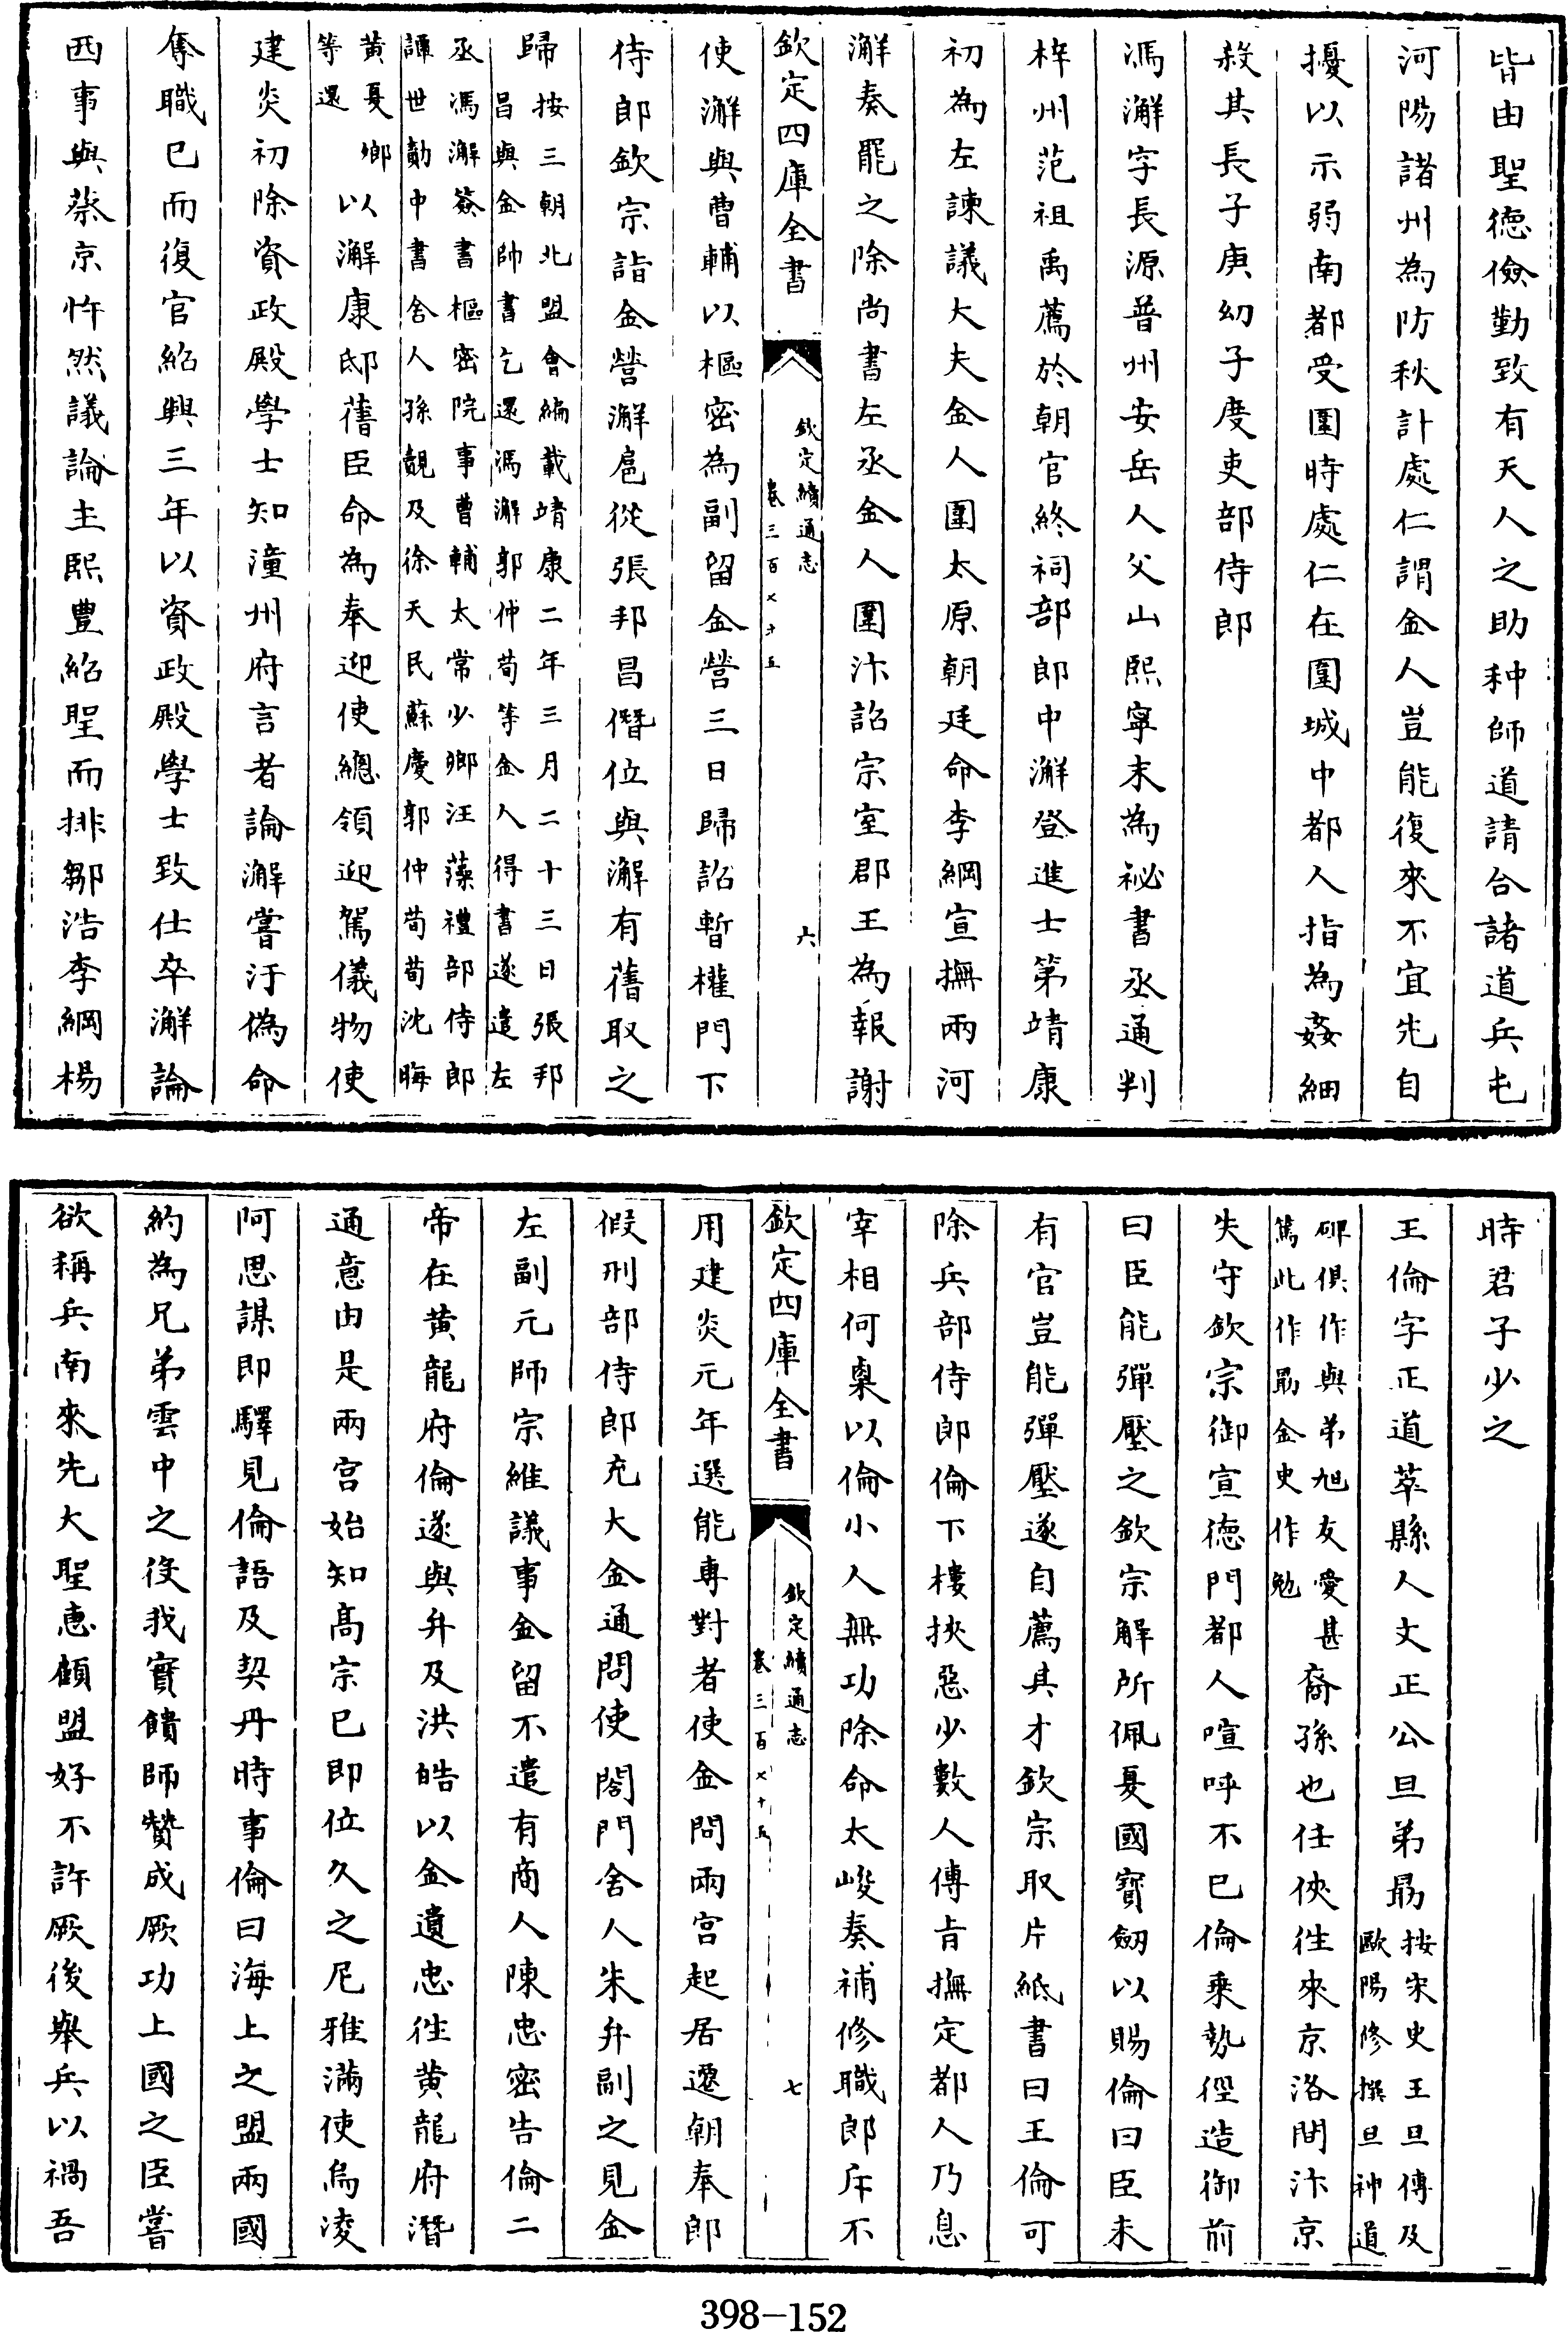 皆由聖徳儉勤致有天人之助种師道請合諸道兵屯
河陽諸州為防秋計處仁謂金人豈能復來不宜先自
擾以示弱南都受圍時處仁在圍城中都人指為姦細
殺其長子庚幼子度吏部侍郎
馮澥字長源普州安岳人父山熙寧末為祕書丞通判
梓州范祖禹薦於朝官終祠部郎中澥登進士第靖康
初為左諫議大夫金人圍太原朝廷命李綱宣撫兩河
澥奏罷之除尚書左丞金人圍汴詔宗室郡王為報謝
欽定四庫全書
欽定續通志
卷三百七十五
六
使澥與曹輔以樞密為副留金營三日歸詔暫權門下
侍郎欽宗詣金營澥扈從張邦昌僭位與澥有舊取之
歸按三朝北盟會編載靖康二年三月二十三日張邦
昌與金帥書乞還馮澥郭仲荀等金人得書遂遣左
丞馮澥簽書樞密院事曹輔太常少卿汪藻禮部侍郎
譚世勣中書舍人孫覿及徐天民蘇慶郭仲荀荀沈晦
黃夏卿
等還
以澥康邸舊臣命為奉迎使總領迎駕儀物使
建炎初除資政殿學士知潼州府言者論澥嘗汙偽命
奪職已而復官紹興三年以資政殿學士致仕卒澥論
西事與蔡京忤然議論主熙豐紹聖而排鄒浩李綱楊
時君子少之
王倫字正道莘縣人文正公旦弟勗按宋史王旦傳及
歐陽修撰旦神道
碑俱作與弟旭友愛甚
篤此作勗金史作勉
裔孫也任俠往來京洛間汴京
失守欽宗御宣德門都人喧呼不已倫乘勢徑造御前
曰臣能彈壓之欽宗解所佩夏國寶劒以賜倫曰臣未
有官豈能彈壓遂自薦其才欽宗取片紙書曰王倫可
除兵部侍郎倫下樓挾惡少數人傳旨撫定都人乃息
宰相何㮚以倫小人無功除命太峻奏補修職郎斥不
欽定四庫全書
欽定續通志
卷三百七十五
七
用建炎元年選能專對者使金問兩宮起居遷朝奉郎
假刑部侍郎充大金通問使閤門舍人朱弁副之見金
左副元師宗維議事金留不遣有商人陳忠密告倫二
帝在黃龍府倫遂與弁及洪皓以金遺忠往黃龍府潛
通意由是兩宮始知高宗已即位久之尼雅滿使烏凌
阿思謀即驛見倫語及契丹時事倫曰海上之盟兩國
約為兄弟雲中之役我實饋師贊成厥功上國之臣嘗
欲稱兵南來先大聖惠顧盟好不許厥後舉兵以禍吾
398-152